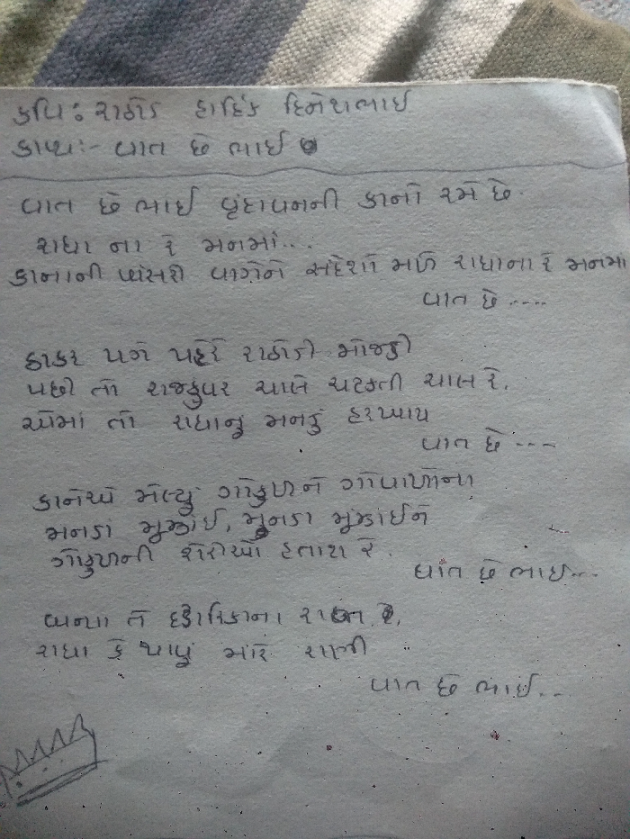 કવિ: રાઠોડ હાર્દિક દિનેશભાઈ
કાવ્ય:- વાત છે ભાઈ
વાત છે ભાઈ વૃંદાવનની કાનો રમે છે.
રાધા ના રે મનમાં...
કાનાની વાંસરી વાગેને સંદેશો મળે રાધાના રે મનમા
વાત છે.....
ઠાકર પગે પહેરે રાઠોડી મોજડી
પછી તો રાજકુવર ચાલે ચટકતી ચાલ રે.
એમાં તો રાધાનુ મનડું હરખાય
વાત છે ----
કાનેએ મેલ્યું ગોકુળને ગોવાળોના
મનડાં મૂઝાંઈ, મુનડા મૂઝાંઈને
ગોકુળની શેરીઓ હતાશ રે.
વાત છે ભાઈ...
બન્યા તે રે,
રાધા કે થાવું મારે રાણી
વાત છે ભાઈ...